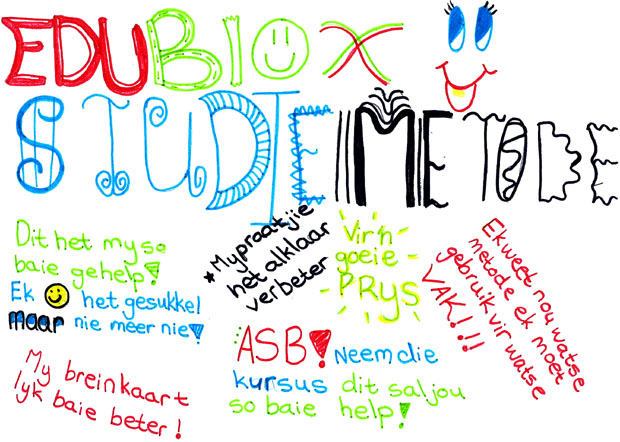 EDUBIOX
STUDIEMETODE
Dit het my so
baie gehelp!
Ek het gesukkel
maar nie meer nie!
My breinkaart
lyk baie beter!
* My praatjie
het alklaar
verbeter
Vir 'n
goeie
PRYS
ASB! Neem die
kursus dit sal jou
so baie help!
Ek weet nou watse
metode ek moet
gebruik vir watse
VAK!!!